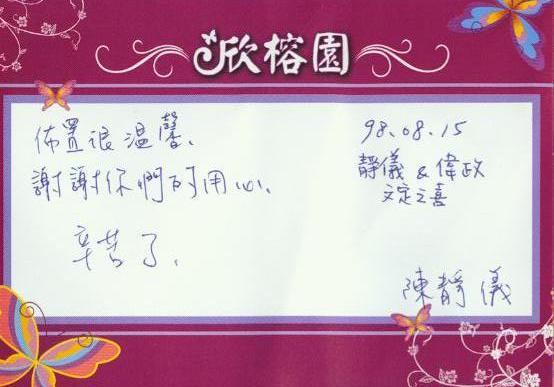 欣榕園
佈置很溫馨、
謝謝你們的用心、
辛苦了、
98.08.15
靜儀 & 偉政
文定之喜
陳靜儀